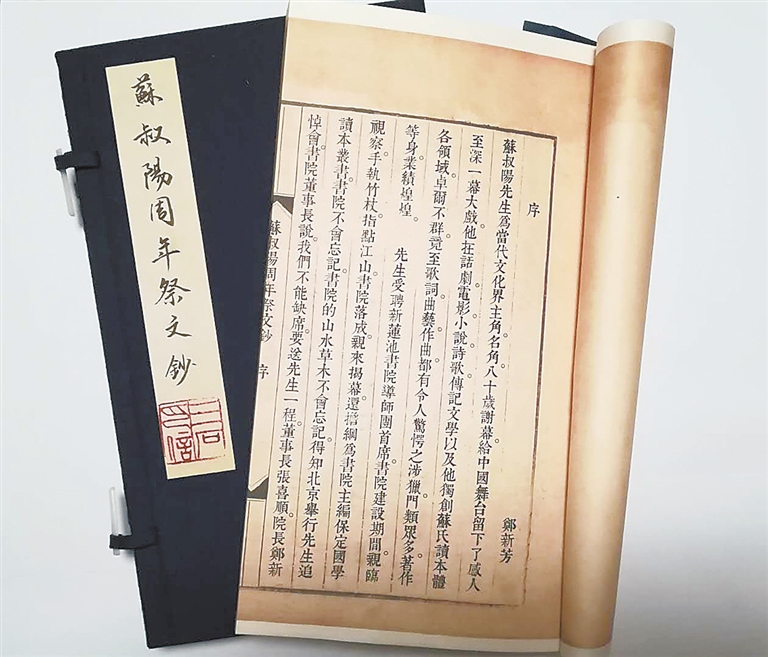 蘇叔陽周年祭文鈔
序
鄭新芳
蘇叔陽先生爲當代文化界主角名角。八十歲謝幕給中國舞台留下了感人
至深一幕大戲。他在話劇。電影。小說。詩歌。傳記文學以及他獨創蘇氏讀本體
各領域。卓爾不群。竟至歌詞。曲藝。作曲都有令人驚愕之涉獵。門類眾多。著作
等身。業績煌煌。 先生受聘新蓮池書院導師團首席。書院建設期間。親臨
視察。手執竹杖。指點江山。書院落成。親來揭幕。還擔綱爲書院主編保定國學
讀本叢書。書院不會忘記。書院的山水草木不會忘記。得知北京舉行先生追
悼會。書院董事長說。我們不能缺席。要送先生一程。董事長張喜順。院長鄭新
蘇叔陽周年祭文鈔 序